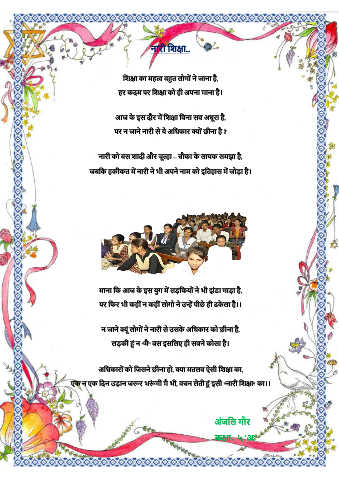 नारी शिक्षा..
शिक्षा का महत्व बहुत लोगों ने जाना है,
हर कदम पर शिक्षा को ही अपना माना है।
आज के इस दौर में शिक्षा बिना सब अधूरा है,
पर न जाने नारी से ये अधिकार क्यों छीना है ?
नारी को बस शादी और चूल्हा – चौका के लायक समझा है,
जबकि हकीकत में नारी ने भी अपने नाम को इतिहास में जोड़ा है।
माना कि आज के इस युग में लड़कियों ने भी झंडा गाड़ा है,
पर फिर भी कहीं न कहीं लोगो ने उन्हें पीछे ही ढकेला है।।
न जाने क्यूं लोगों ने नारी से उसके अधिकार को छीना है,
लड़की हूं न मैं- बस इसलिए ही सबने कोसा है।
अधिकारों को जिसने छीना हो, क्या मतलब ऐसी शिक्षा का,
एक न एक दिन उड़ान जरूर भरूंगी मैं भी, वचन लेती हूं इसी -नारी शिक्षा- का।।
अंजलि गौर